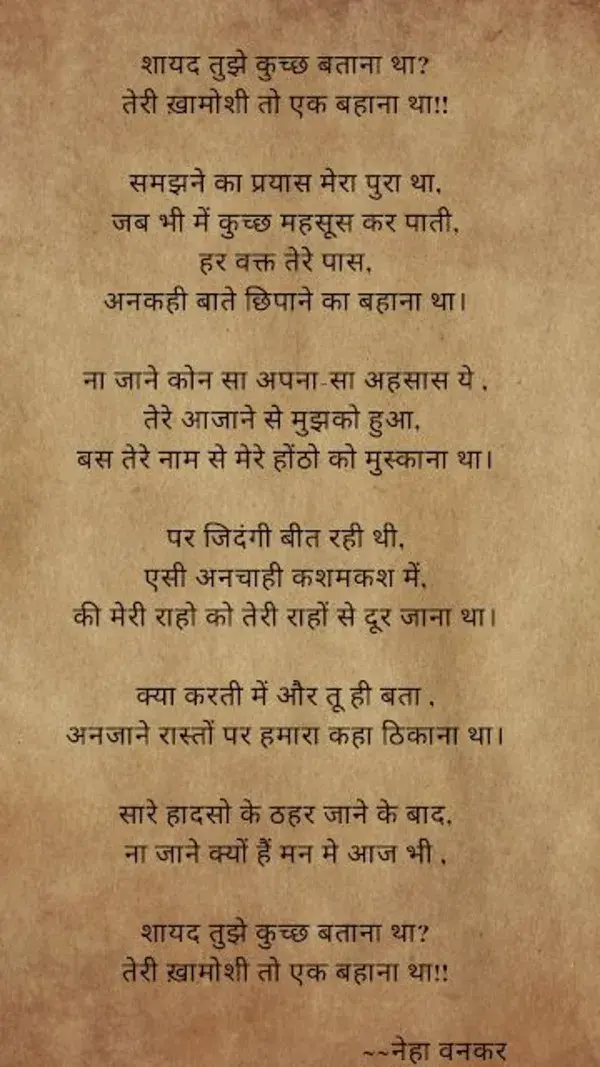 शायद तुझे कुच्छ बताना था?
तेरी ख़ामोशी तो एक बहाना था!!
समझने का प्रयास मेरा पुरा था,
जब भी में कुच्छ महसूस कर पाती,
हर वक्त तेरे पास,
अनकही बाते छिपाने का बहाना था।
ना जाने कोन सा अपना-सा अहसास ये ,
तेरे आजाने से मुझको हुआ,
बस तेरे नाम से मेरे होंठो को मुस्काना था।
पर जिदंगी बीत रही थी,
एसी अनचाही कशमकश में,
की मेरी राहो को तेरी राहों से दूर जाना था।
क्या करती में और तू ही बता ,
अनजाने रास्तों पर हमारा कहा ठिकाना था।
सारे हादसो के ठहर जाने के बाद,
ना जाने क्यों हैं मन मे आज भी ,
शायद तुझे कुच्छ बताना था?
तेरी ख़ामोशी तो एक बहाना था!!
~~नेहा वनकर